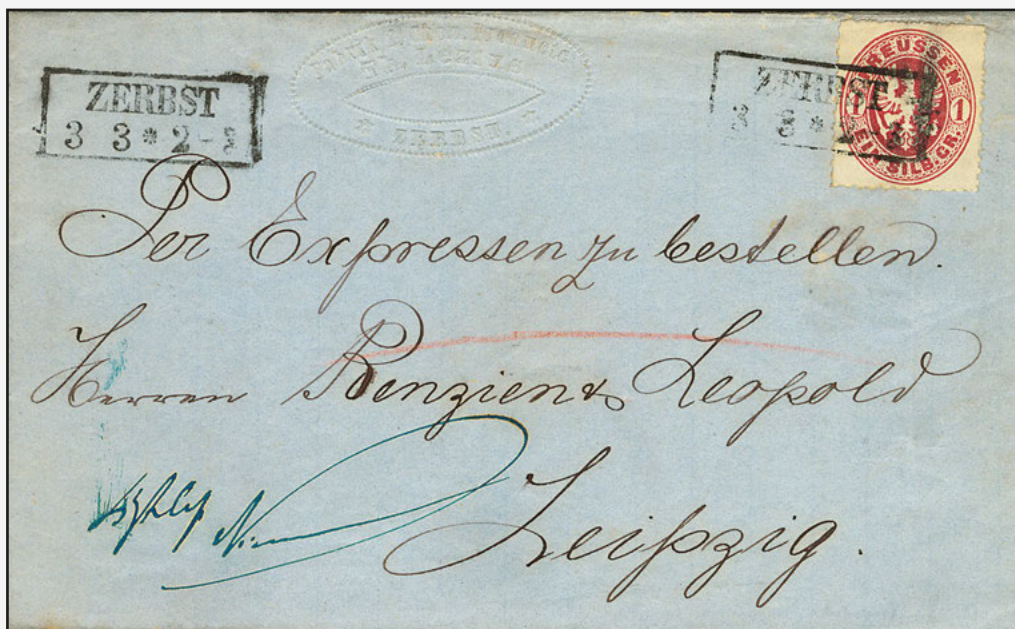 ZERBST
3 3 * 2-
ZERBST
ZERBST
3 3 *
PREUSSEN
1 1
EIN SILB. GR.
Per Expressen zu bestellen.
Herren Renzien & Leopold
Leipzig.